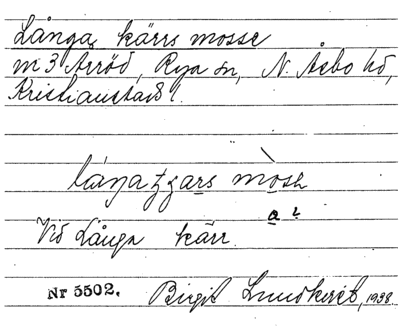 Långa kärrs mosse
m 3 Arröd, Rya sn, N. Åsbo hd,
Kristianstads l.
Vid Långa kärr.
Nr 5502. Birgit Lundkvist, 1938.